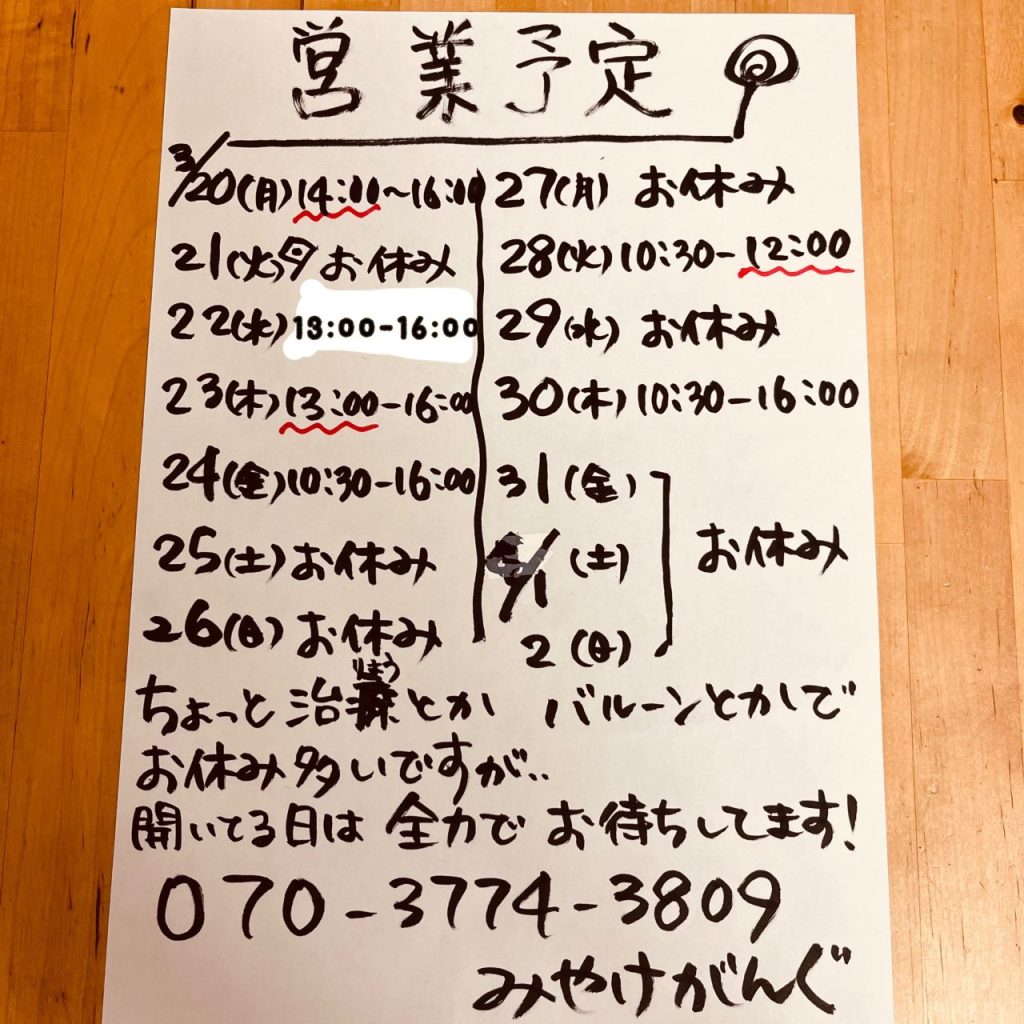 営業予定
3/20(月)14:00~16:00
21(火)夕 お休み
22(水)13:00-16:00
23(木)13:00-16:00
24(金)10:30-16:00
25(土)お休み
26(日)お休み
27(月) お休み
28(火)10:30-12:00
29(水) お休み
30(木)10:30-16:00
31(金)
4/1(土)
2(日)
お休み
りょう
ちょっと治療とか バルーンとかしで
お休み多いですが..
開いてる日は全力でお待ちしてます!
070-3774-3809
みやけがんぐ